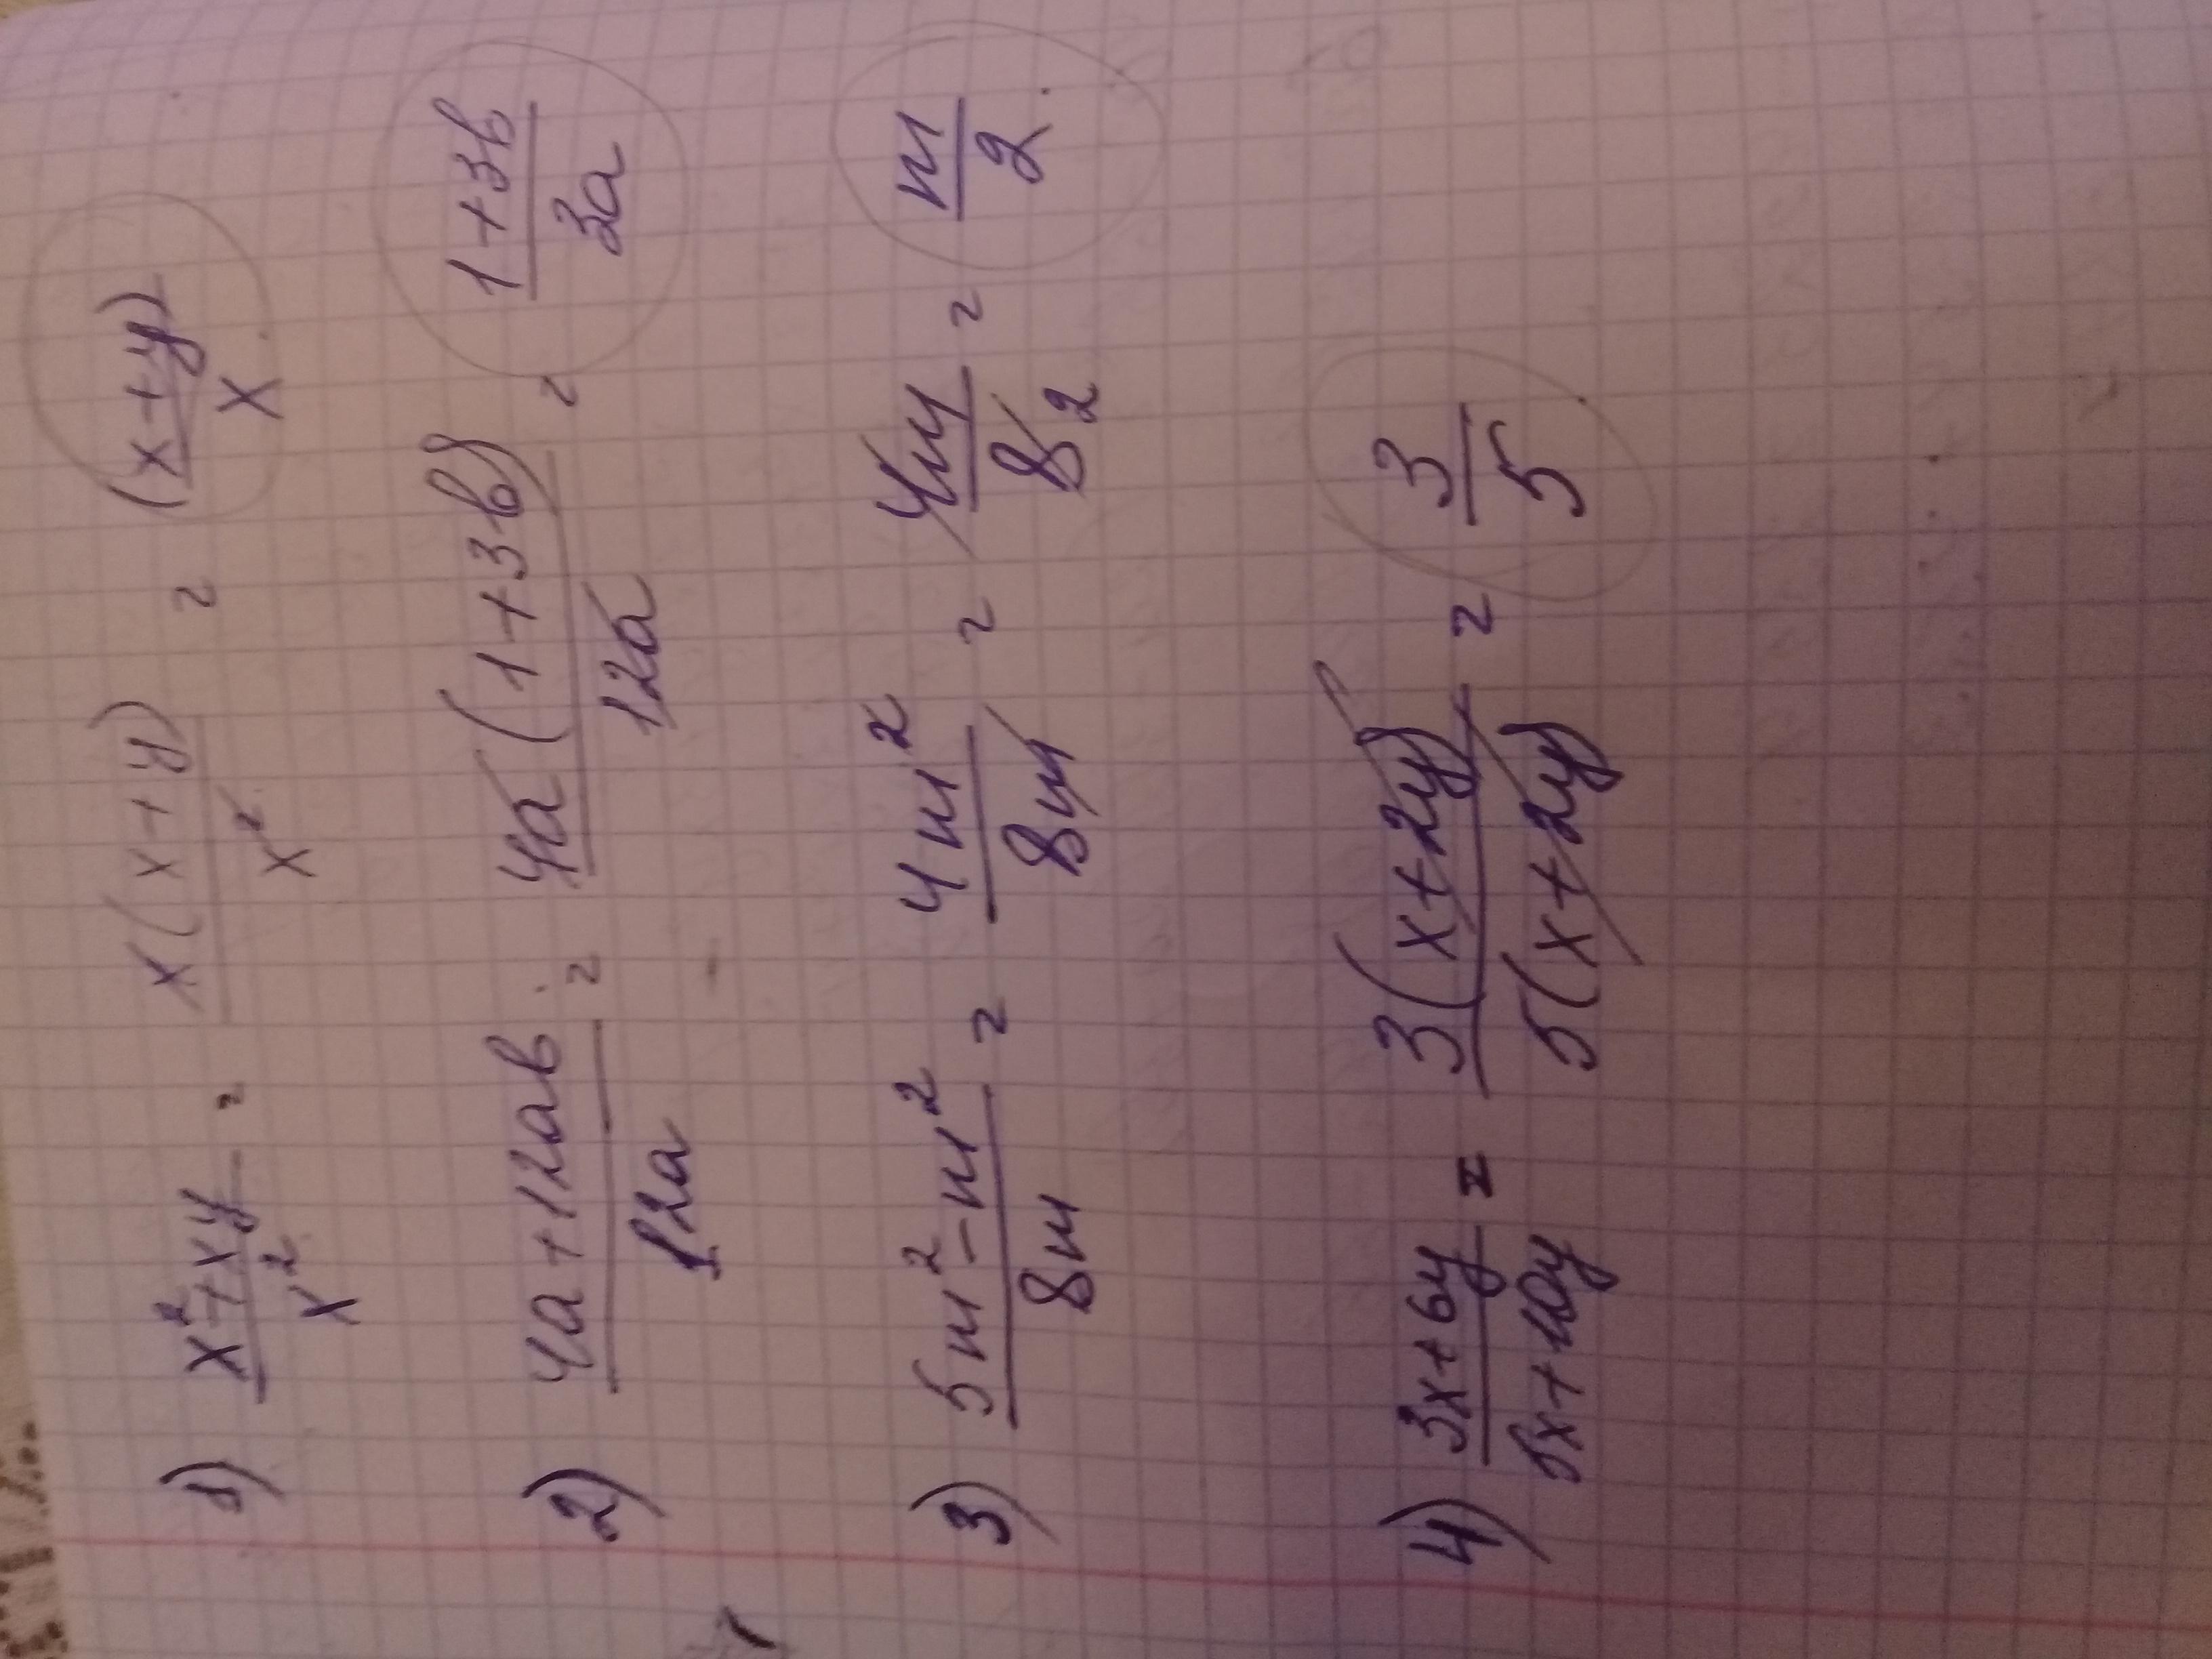 1) (x² + xy)/x² = x(x+y)/x² = (x+y)/x
2) (4a + 12ab)/12a = 4a(1+3b)/12a = (1+3b)/3a
3) (5m² - m²)/8m = 4m²/8m = 4m/8 2 = m/2.
4) (3x+6y)/(5x+10y) = 3(x+2y)/5(x+2y) = 3/5.